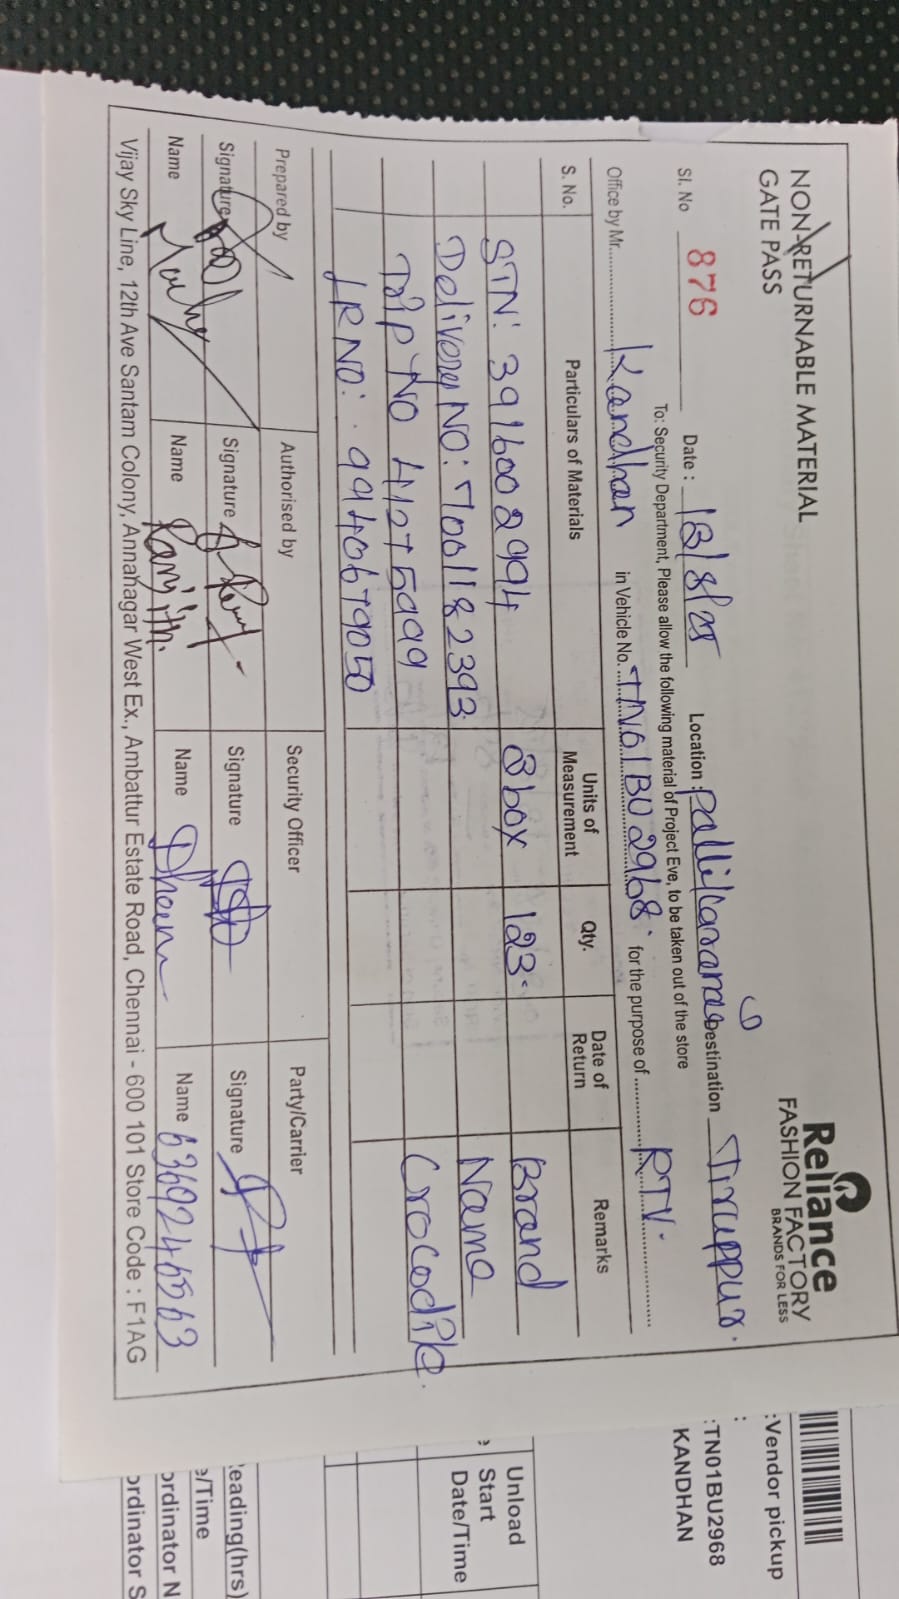 NON-RETURNABLE MATERIAL
GATE PASS
Reliance
FASHION FACTORY
BRANDS FOR LESS
Sl. No 876 Date : 13/8/25 Location : Pallikaranai Destination Tiruppur.
To: Security Department, Please allow the following material of Project Eve, to be taken out of the store
Office by Mr. Kandhan in Vehicle No. TN01BU2968. for the purpose of RTV.
S. No. Particulars of Materials Units of Measurement Qty. Date of Return Remarks
STN: 3916002994 3 box 123. Brand
Delivery NO: 7001182393. Name
Trip NO 41275999 Crocodile.
LR NO: 9940679050
Prepared by Authorised by Security Officer Party/Carrier
Signature Signature Signature Signature
Name Name Ranjith. Name Name 6369246563
Vijay Sky Line, 12th Ave Santam Colony, Annanagar West Ex., Ambattur Estate Road, Chennai - 600 101 Store Code : F1AG
:Vendor pickup
:
:TN01BU2968
KANDHAN
Unload
Start
Date/Time
eading(hrs)
e/Time
ordinator N
ordinator S